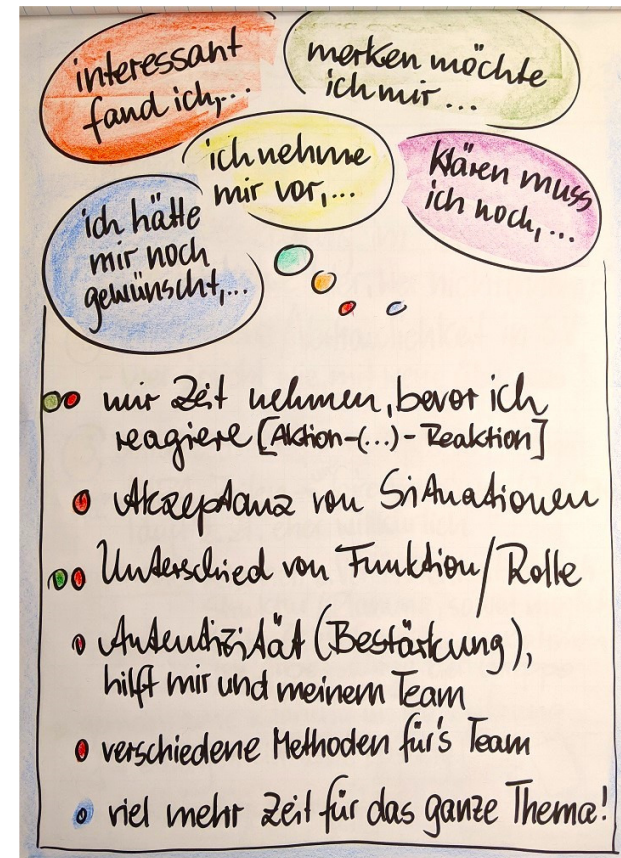 interessant
fand ich,...
merken möchte
ich mir ...
ich nehme
mir vor,...
klären muss
ich noch,...
ich hätte
mir noch
gewünscht,...
mir Zeit nehmen, bevor ich
reagiere [Aktion-(...)-Reaktion]
Akzeptanz von Situationen
Unterschied von Funktion/Rolle
Autentizität (Bestärkung),
hilft mir und meinem Team
verschiedene Methoden für's Team
viel mehr Zeit für das ganze Thema!